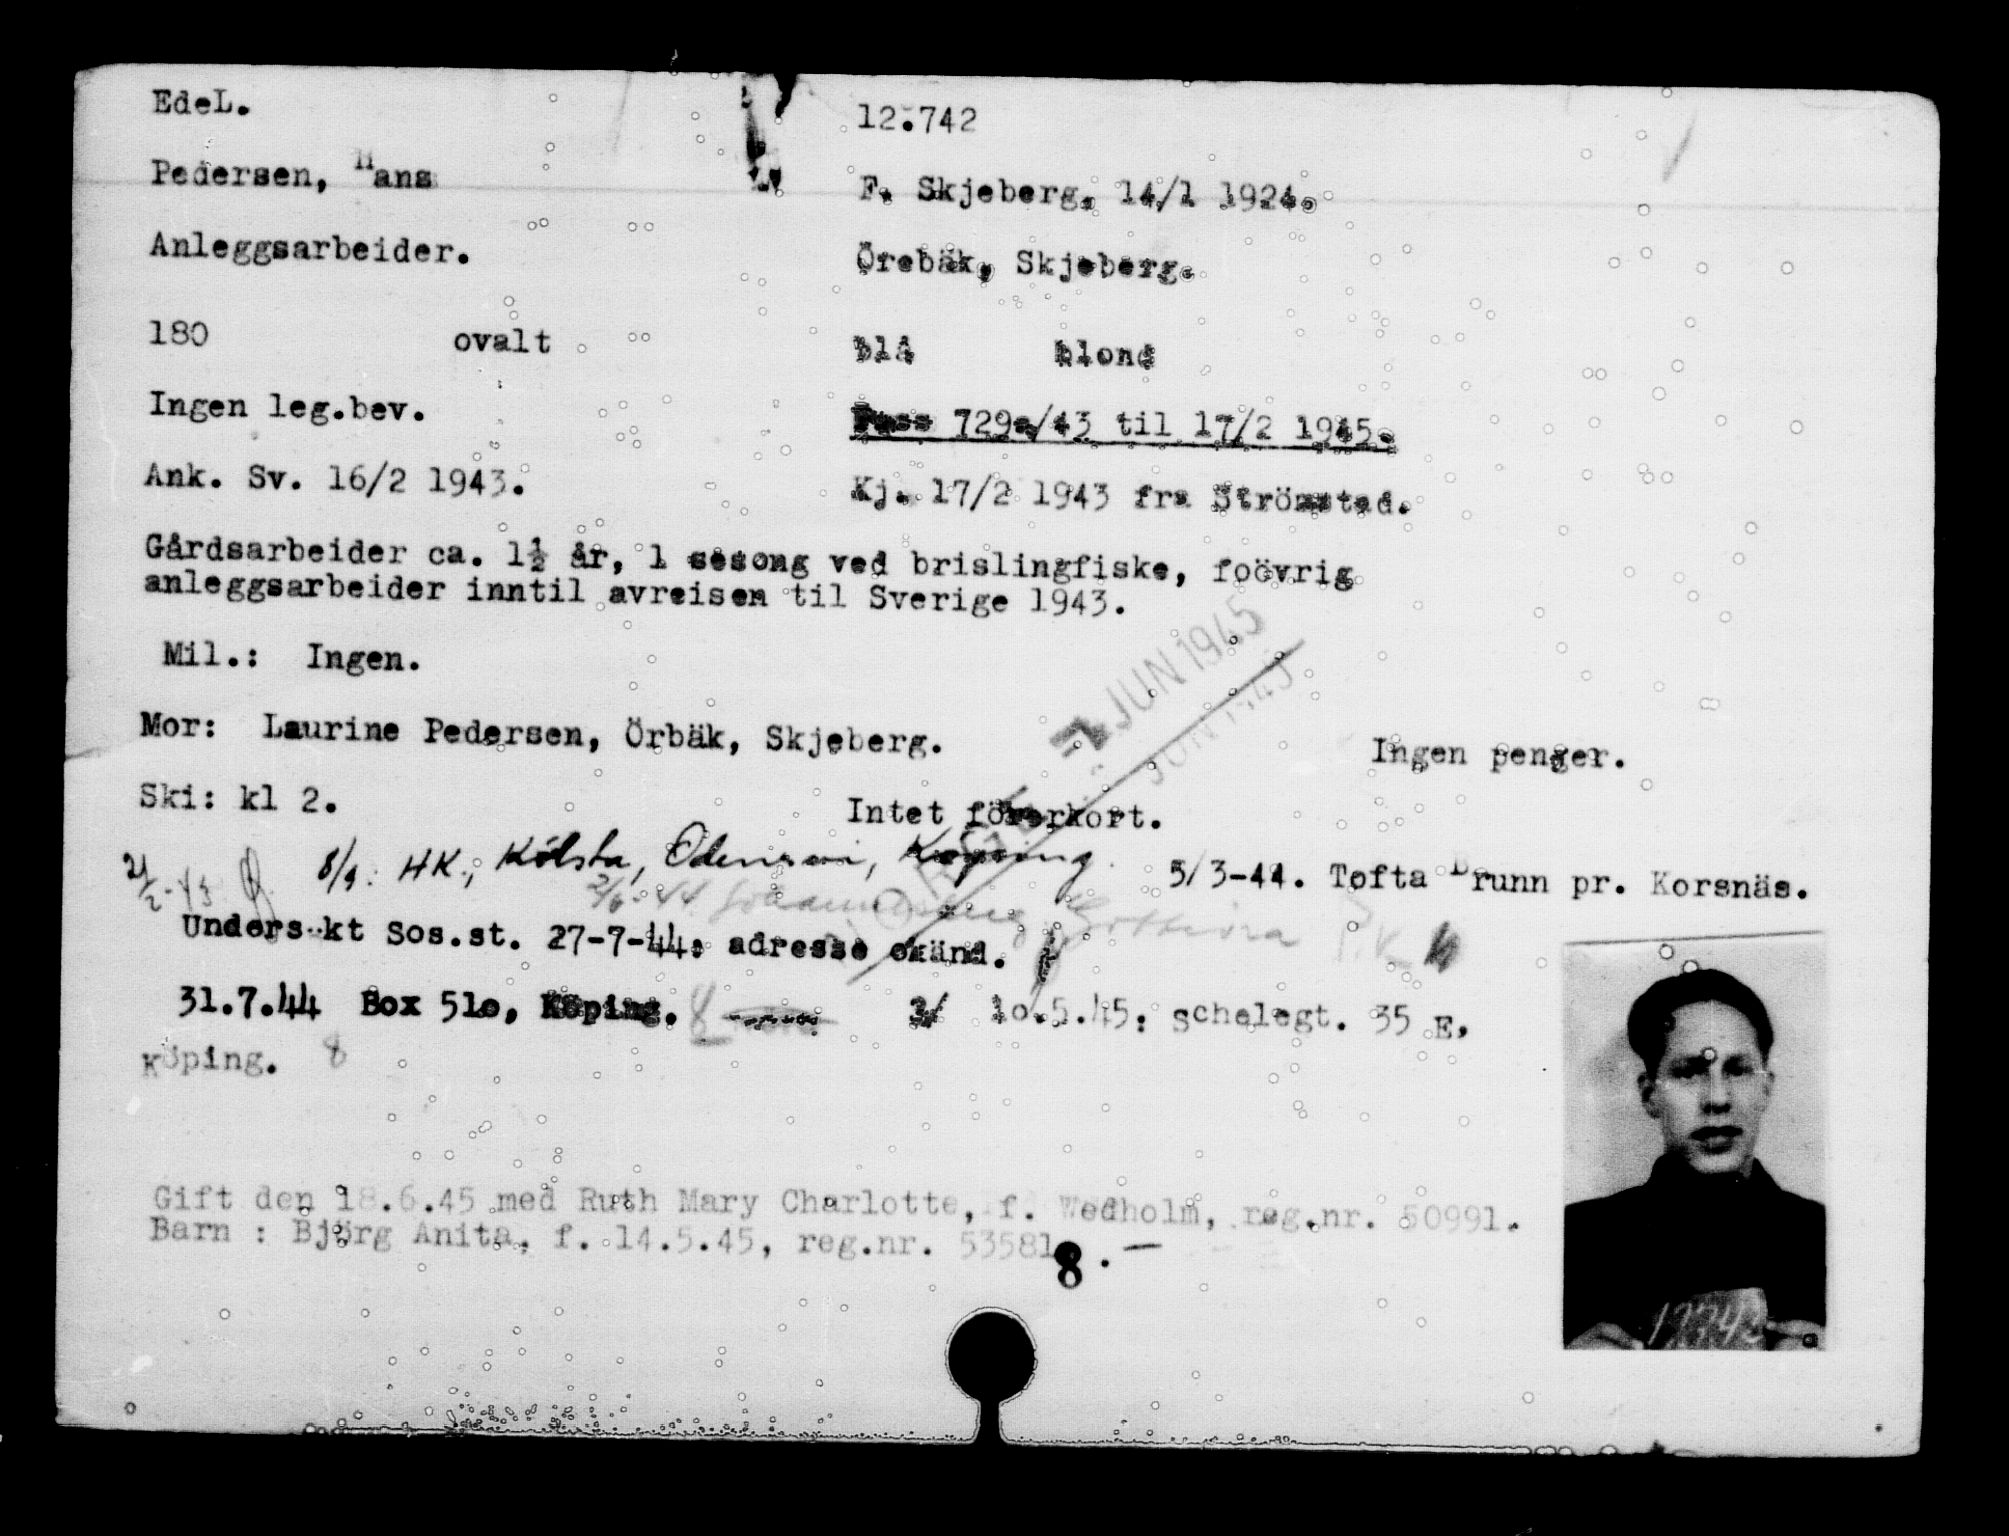 EdeL.
12.742
Pedersen, Hans
F. Skjeberg, 14/1 1924.
Anleggsarbeider.
Örebäk, Skjeberg.
180 ovalt
blå blond
Ingen leg.bev.
Pass 729a/43 til 17/2 1945.
Ank. Sv. 16/2 1943.
Kj. 17/2 1943 fra Strömstad.
Gårdsarbeider ca. 1½ år, 1 sesong ved brislingfiske, foövrig
anleggsarbeider inntil avreisen til Sverige 1943.
Mil.: Ingen.
JUN 1945
JUN 1945
NORGE
Mor: Laurine Pedersen, Örbäk, Skjeberg.
Ingen penger.
Ski: kl 2.
Intet förerkort.
8/9. HK., Kölsta, Odensvi, Köping.
5/3-44. Tofta Brunn pr. Korsnäs.
2/6-44
Unders kt Sos.st. 27-7-44: adresse okänd.
31.7.44 Box 51o, Köping.
1o.5.45: schelegt. 35 E,
Köping. 8
Gift den 18.6.45 med Ruth Mary Charlotte, f. Wedholm, reg.nr. 50991.
Barn : Björg Anita, f. 14.5.45, reg.nr. 53581.-
8
12742